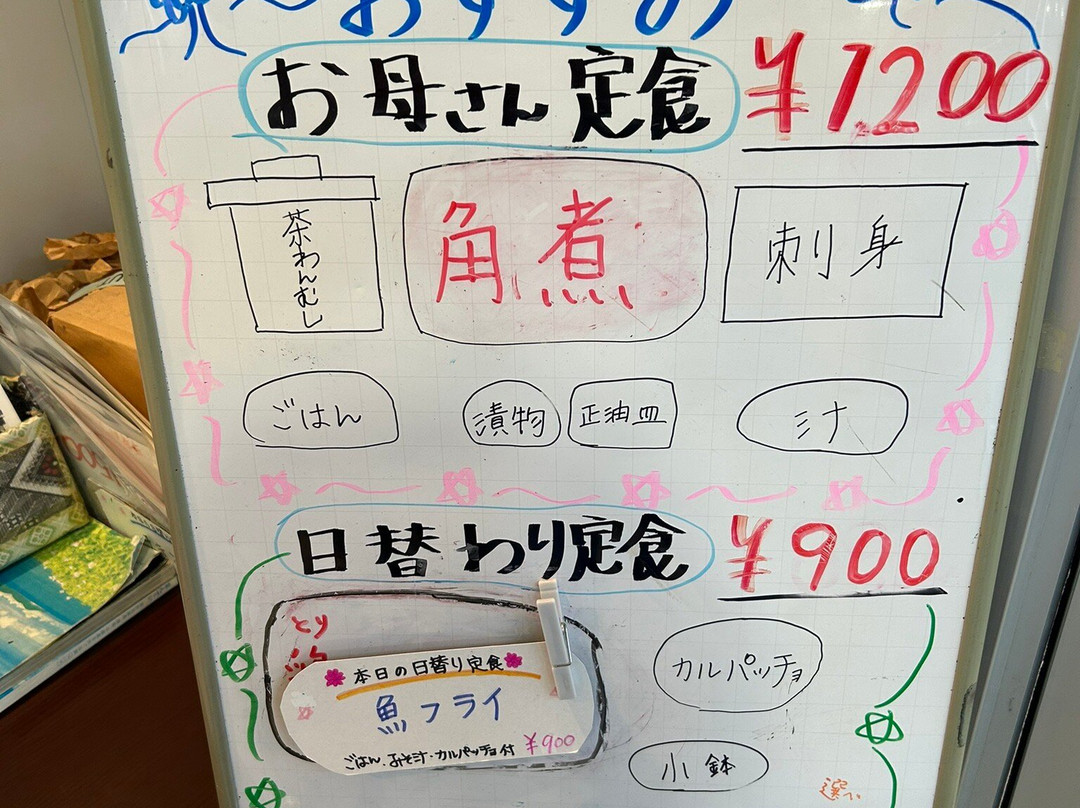 おすすめ
お母さん定食 ¥1,200
茶わんむし
角煮
刺身
ごはん
漬物
正油皿
汁
日替わり定食 ¥900
とり
本日の日替り定食
魚フライ
ごはん、みそ汁・カルパッチョ付 ¥900
カルパッチョ
小鉢